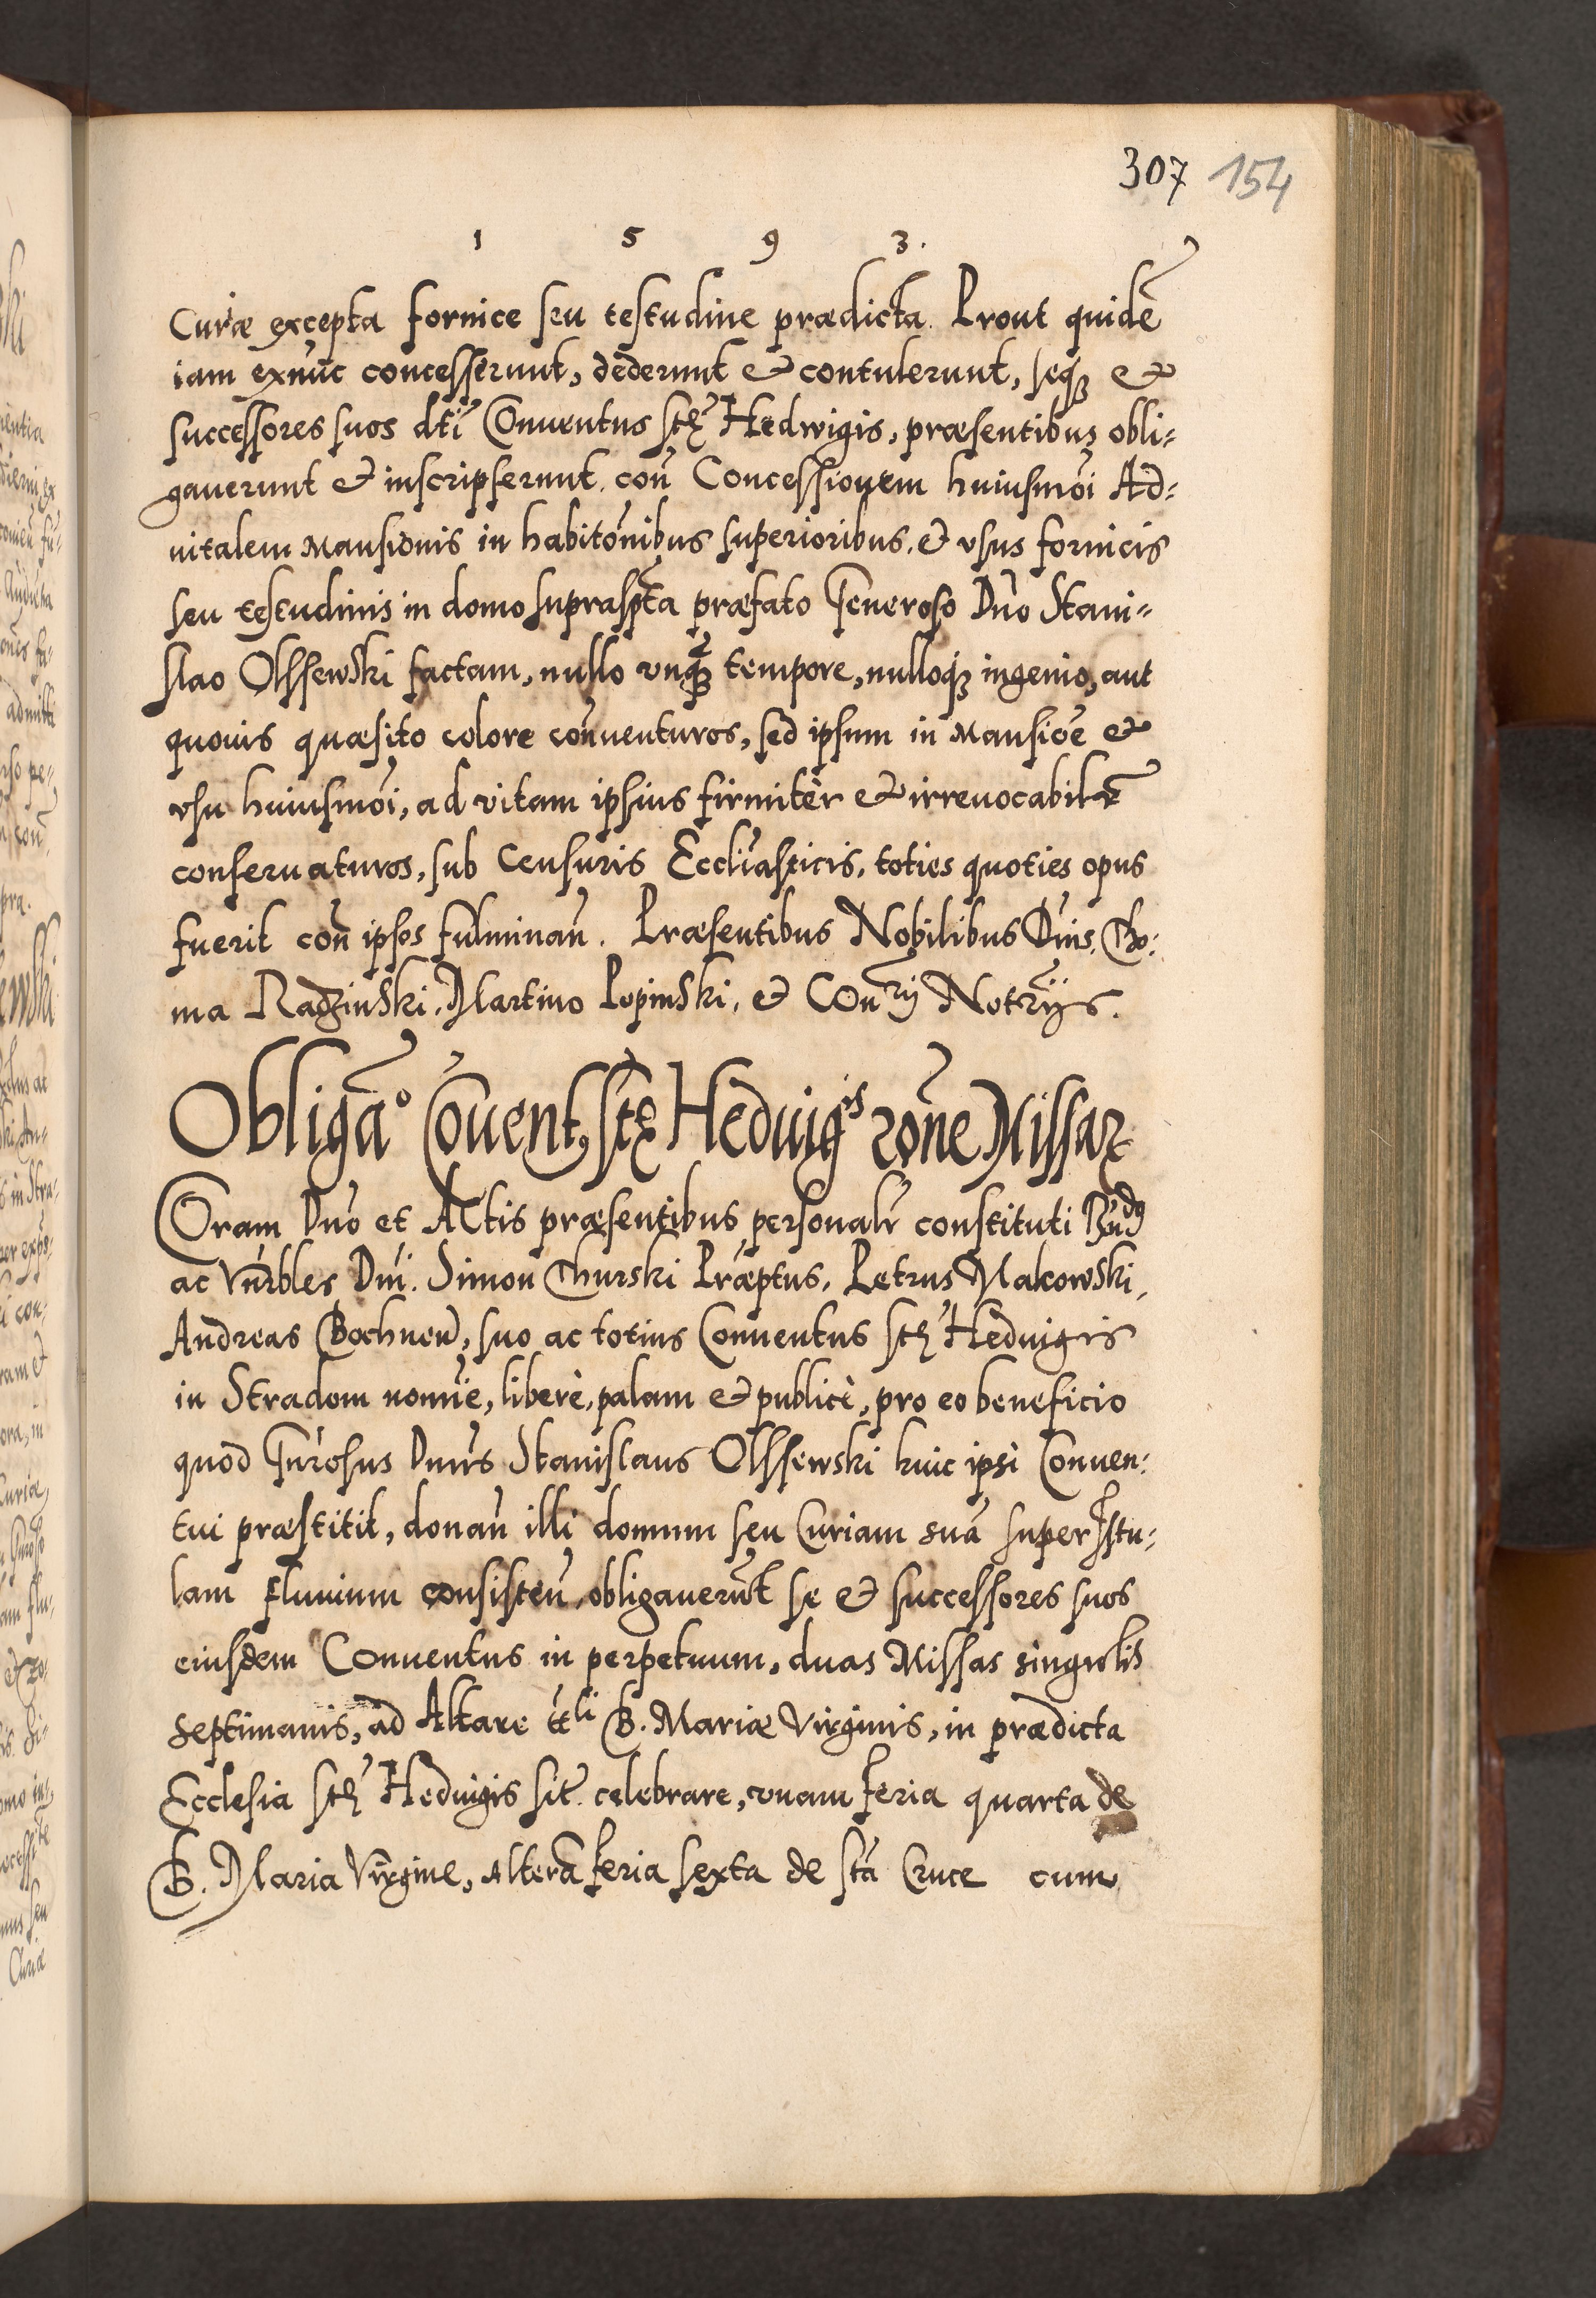 307 154
1 5 9 3.
Curiæ excepta fornice seu testudine prædicta. Prout quidē
iam exnūc concesserunt, dederunt & contulerunt, seq₃ &
successores suos dt̄i Conventus stę Hedwigis, præsentibus obli=
gauerunt & inscripserunt. con̄ Concessionem huiusmōi Ad=
uitalem Mansionis in habitōnibus superioribus. & vsus fornicis
seu testudinis in domo suprasp̄ta præfato Generoso Dn̄o Stani=
slao Olssewski factam, nullo vnq₃ tempore, nulloq₃ ingenio, aut
quouis quæsito colore conventuros, sed ipsum in Mansiōe &
vsu huiusmōi, ad vitam ipsius firmitèr & irreuocabilr̄
conseruaturos, sub Censuris Eccliāsticis, toties quoties opus
fuerit con̄ ipsos fulminan̄. Præsentibus Nobilibus Dn̄is. Tho:
ma Radzinski, Martino Lopinski, & Conrij Notr̄ijs.
Obligāo Cōuent₉ stę Heduigis rōne Missaꝝ
Coram Dn̄o et Actis præsentibus personalr̄ constituti Rn̄dꝰ
ac Vn̄rbles Dn̄i. Simon Thurski Præptus. Petrus Makowski,
Andreas Bochnen̄, suo ac totius Conuentus stę Heduigis
in Stradom nomīe, liberè, palam & publicè, pro eo beneficio
quod Gn̄rosus Dnūs Stanislaus Olssewski huic ipsi Conuen:
tui præstitit, donan̄ illi domum seu Curiam suā super Istu:
lam fluuium consisten̄, obligauerūt se & successores suos
eiusdem Conuentus in perpetuum, duas Missas singulis
septimanis, ad Altare tt̄li B. Mariæ Virginis, in prædicta
Ecclesia stę Heduigis sit̄. celebrare, vnam feria quarta de
B. Maria Virgine, alterā feria sexta de st̄a Cruce cum